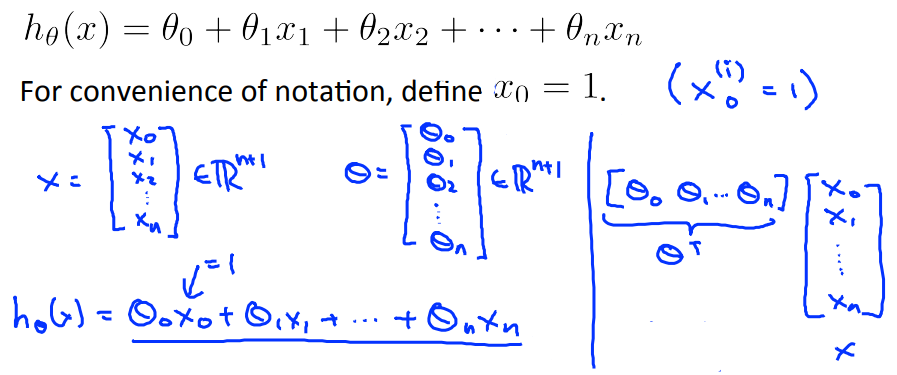 h_θ(x) = θ₀ + θ₁x₁ + θ₂x₂ + ⋯ + θₙxₙ
For convenience of notation, define x₀ = 1. (x₀⁽ⁱ⁾ = 1)
x = [x₀ x₁ x₂ ⋮ xₙ] ∈ ℝⁿ⁺¹ θ = [θ₀ θ₁ θ₂ ⋮ θₙ] ∈ ℝⁿ⁺¹
= 1
h_θ(x) = θ₀x₀ + θ₁x₁ + ⋯ + θₙxₙ
[θ₀ θ₁ ⋯ θₙ] [x₀ x₁ ⋮ xₙ]
θᵀ
x